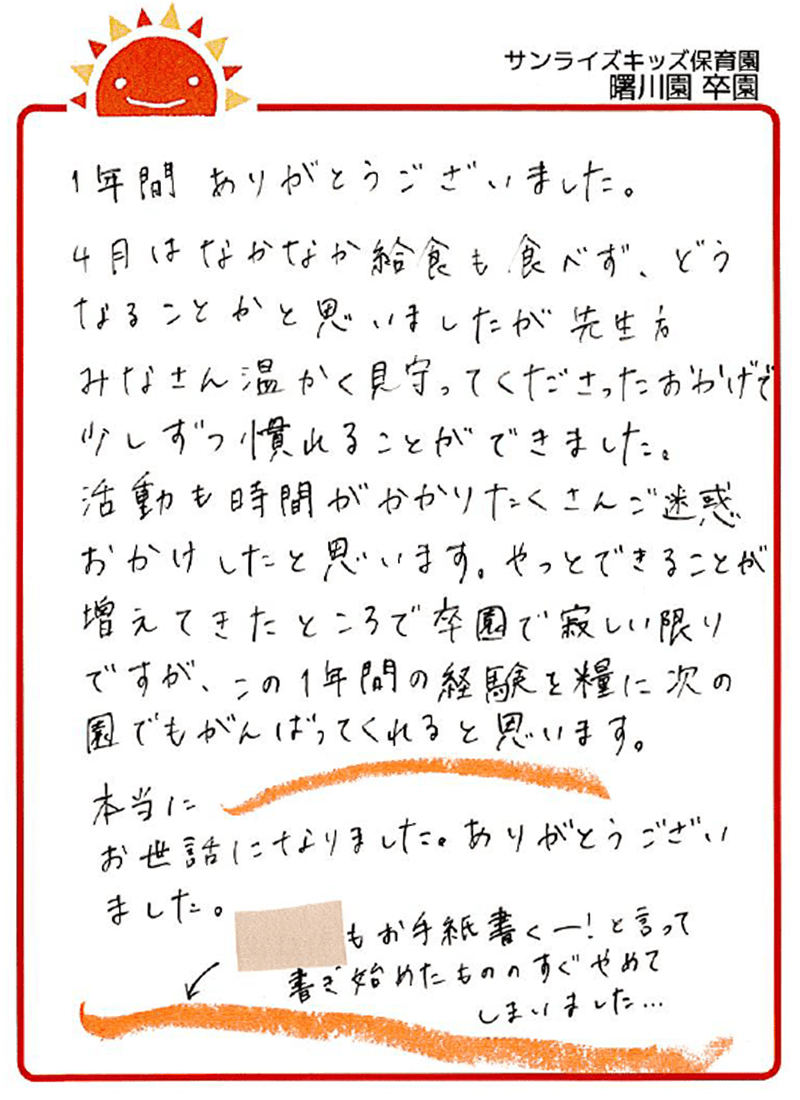 サンライズキッズ保育園
曙川園 卒園
1年間 ありがとうございました。
4月はなかなか給食も食べず、どう
なることかと思いましたが先生方
みなさん温かく見守ってくださったおかげで
少しずつ慣れることができました。
活動も時間がかかりたくさんご迷惑
おかけしたと思います。やっとできることが
増えてきたところで卒園で寂しい限り
ですが、この1年間の経験を糧に次の
園でもがんばってくれると思います。
本当に
お世話になりました。ありがとうござい
ました。
もお手紙書くー!と言って
書き始めたもののすぐやめて
しまいました…